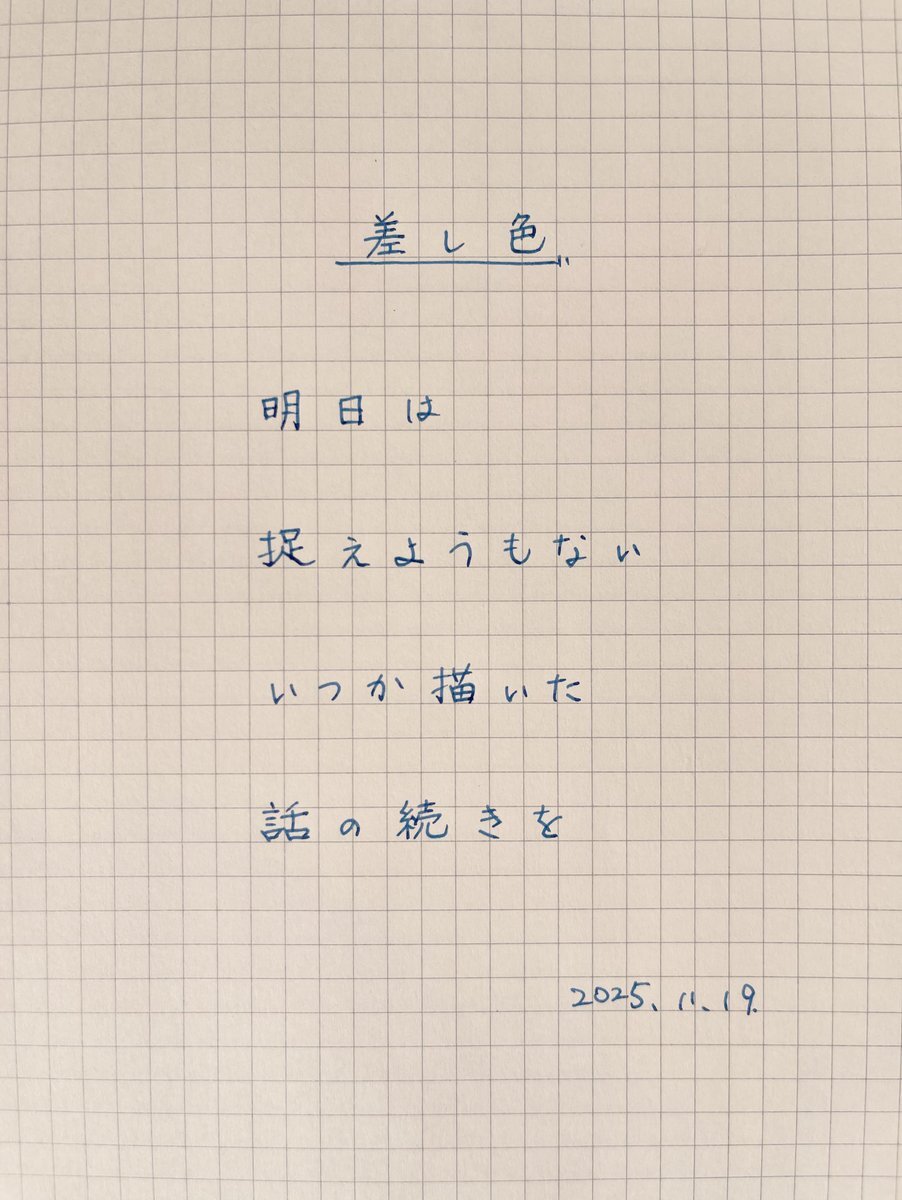 差し色
明日は
捉えようもない
いつか描いた
話の続きを
2025.11.19.